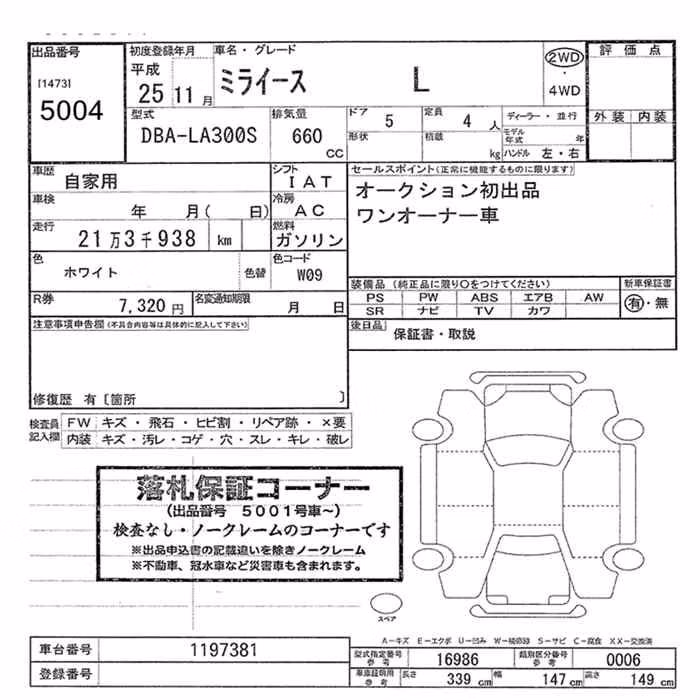 出品番号
[1473]
5004
初度登録年月
平成
25 11 月
車名・グレード
ミライース L
2WD
・
4WD
評価点
外装 内装
型式
DBA-LA300S
排気量
660
CC
ドア
5
定員
4 人
形状
積載
kg
ディーラー・並行
モデル年式 年
ハンドル 左・右
車歴
自家用
シフト
IAT
車検
年 月( 日)
冷房
AC
走行
21万3千938 km
燃料
ガソリン
色
ホワイト
色替
色コード
W09
セールスポイント(正常に機能するものに限ります)
オークション初出品
ワンオーナー車
R券
7,320 円
名変通知期限
月 日
装備品(純正品に限り○をつけてください)
PS PW ABS エアB AW
SR ナビ TV カワ
新車保証書
有・無
後日品
保証書・取説
注意事項申告欄(不具合内容等は具体的に記入して下さい)
修復歴 有〔箇所 〕
検査員記入欄
FW キズ・飛石・ヒビ割・リペア跡・×要
内装 キズ・汚レ・コゲ・穴・スレ・キレ・破レ
落札保証コーナー
(出品番号 5001号車~)
検査なし・ノークレームのコーナーです
※出品申込書の記載違いを除きノークレーム
※不動車、冠水車など災害車も含まれます。
スペア
A-キズ E-エクボ U-凹み W-補修跡 S-サビ C-腐食 XX-交換済
車台番号
1197381
登録番号
型式指定番号 参考
16986
類別区分番号 参考
0006
車庫証明用 参考
長さ 339 cm 幅 147 cm 高さ 149 cm